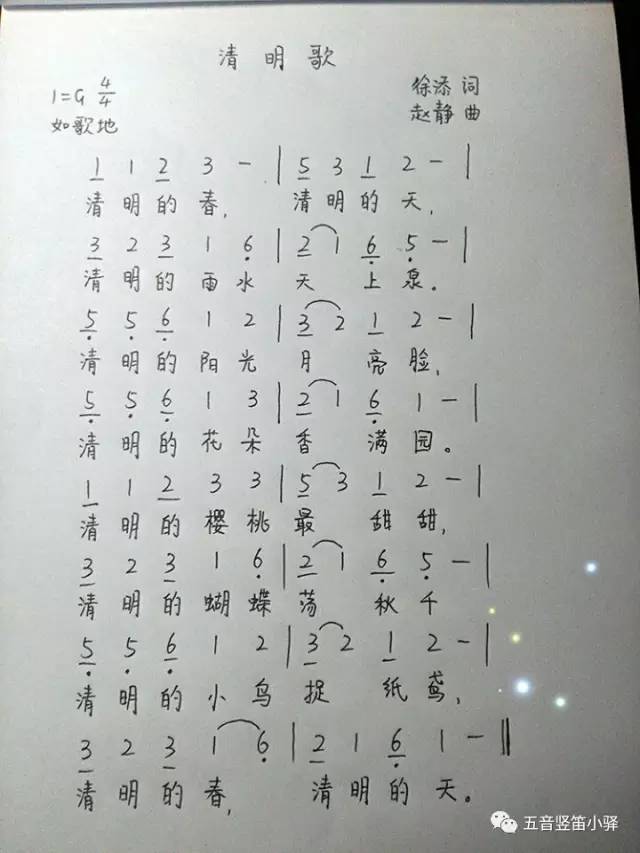 清明歌
1=G 4/4 徐添 词
如歌地 赵静 曲
1 1 2 3 - | 5 3 1 2 - |
清明的春， 清明的天，
3 2 3 1 6 | 2 1 6 5 - |
清明的雨水 天 上泉。
5 5 6 1 2 | 3 2 1 2 - |
清明的阳光 月 亮脸，
5 5 6 1 3 | 2 1 6 1 - |
清明的花朵 香 满园。
1 1 2 3 3 | 5 3 1 2 - |
清明的樱桃 最 甜甜，
3 2 3 1 6 | 2 1 6 5 - |
清明的蝴蝶 荡 秋千
5 5 6 1 2 | 3 2 1 2 - |
清明的小鸟 捉 纸鸢，
3 2 3 1 6 | 2 1 6 1 - ‖
清明的春， 清明的天。
五音竖笛小驿